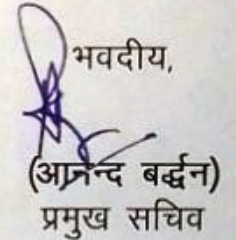 भवदीय,
(आनन्द बर्द्धन)
प्रमुख सचिव